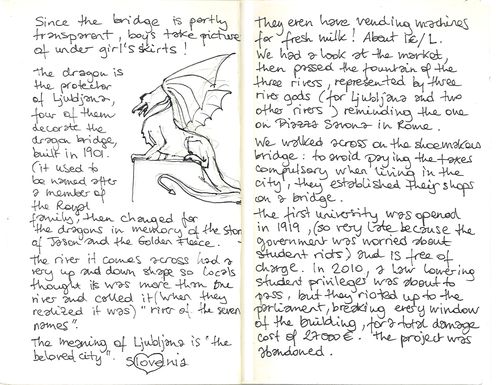 Since the bridge is partly
transparent, boys take picture
of under girl's skirts!
The dragon is
the protector
of Ljubljana,
four of them
decorate the
dragon bridge,
built in 1901.
(it used to
be named after
a member of
the Royal
family, then changed for
the dragons in memory of the story
of Jason and the Golden Fleece.
The river it comes across had a
very up and down shape so locals
thought it was more than one
river and called it (when they
realized it was) "river of the seven
names".
The meaning of Ljubljana is "the
beloved city". Slovenia
They even have vending machines
for fresh milk! About 1€/L.
We had a look at the market,
then passed the fountain of the
three rivers, represented by three
river gods (for Ljubljana and two
other rivers) reminding the one
on Piazza Navona in Rome.
We walked across on the shoemakers
bridge: to avoid paying the taxes
compulsary when living in the
city, they established their shops
on a bridge.
The first university was opened
in 1919, (so very late because the
government was worried about
student riots) and is free of
charge. In 2010, a law lowering
student privileges was about to
pass, but they rioted up to the
parliament, breaking every window
of the building, for a total damage
cost of 27000€. The project was
abandoned.